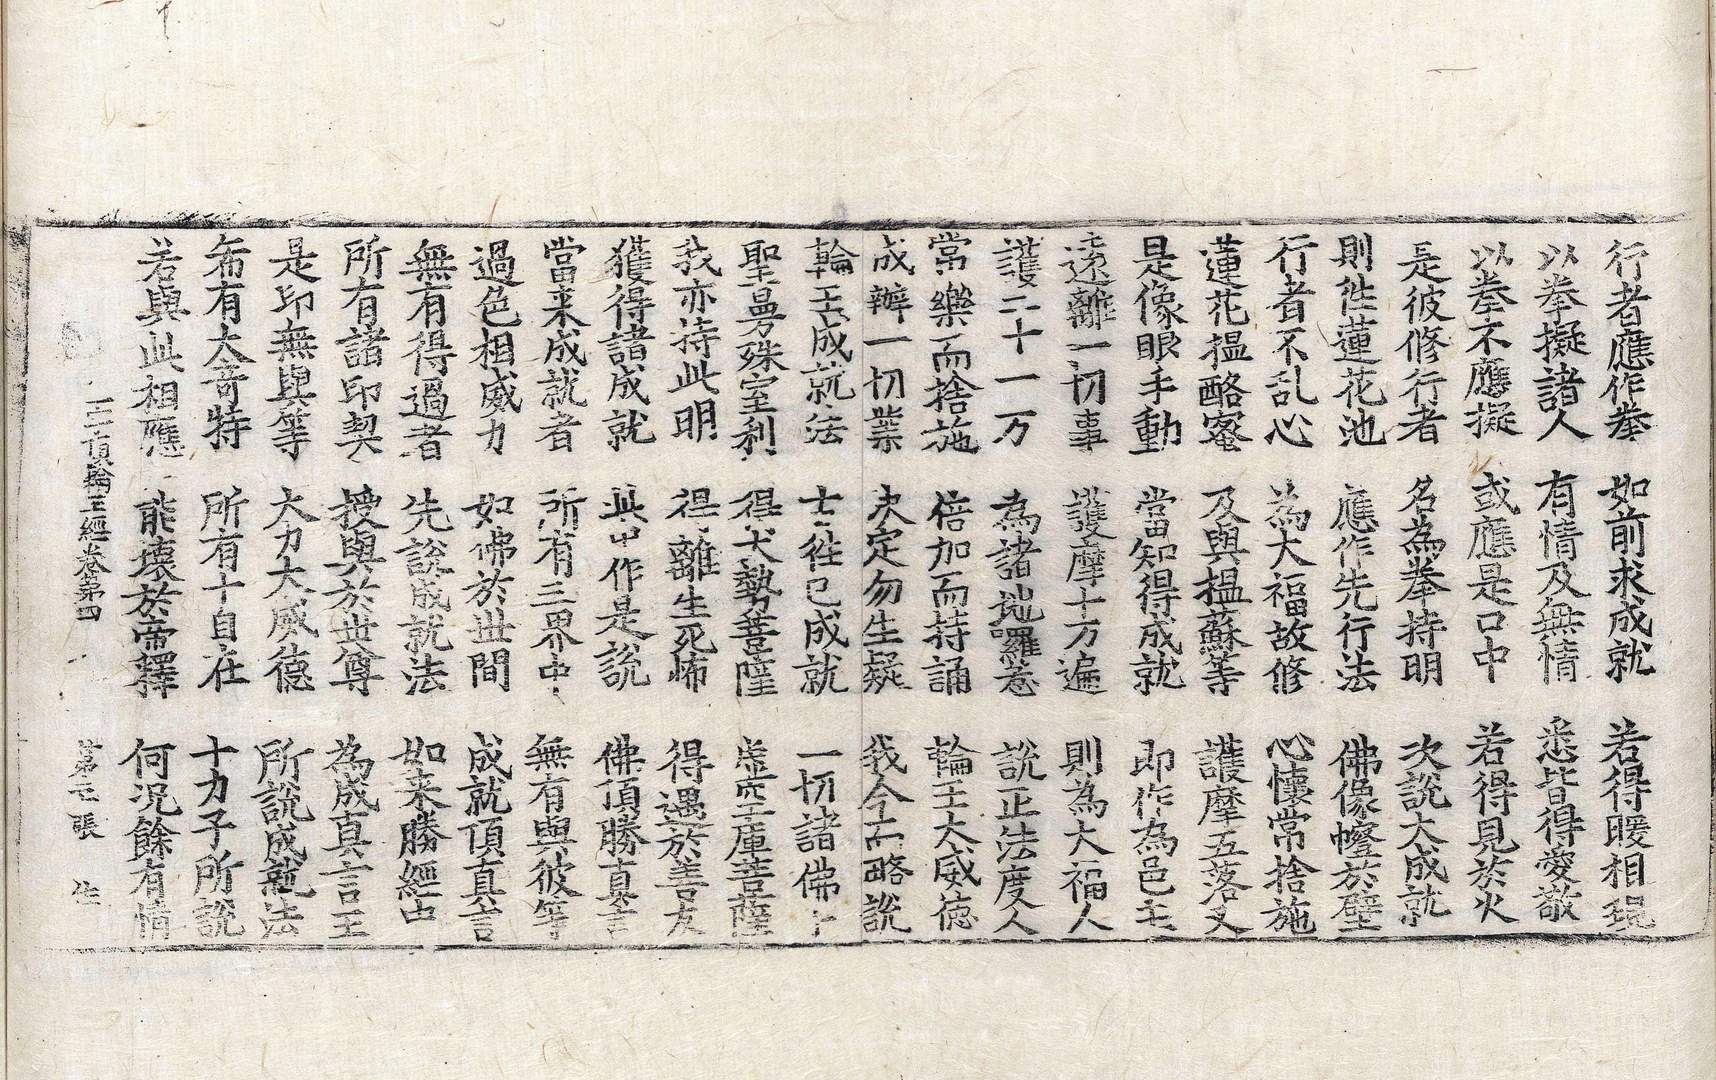 行者應作拳　如前求成就　若得暖相現
以拳擬諸人　有情及無情　悉皆得愛敬
以拳不應擬　或應是口中　若得見於火
是彼修行者　名為拳持明　次說大成就
則往蓮花池　應作先行法　佛像幰於壁
行者不乱心　為大福故修　心懷常捨施
蓮花搵酪蜜　及與搵蘇等　護摩五落叉
是像眼手動　當知得成就　即作為邑主
遠離一切事　護摩十万遍　則為大福人
護二十一万　為諸地囉惹　說正法度人
常樂而捨施　倍加而持誦　輪王大威德
成辦一切業　決定勿生疑　我今而略說
輪王成就法　士往已成就　一切諸佛
聖曼殊室利　得大勢菩薩　虛空庫菩薩
我亦持此明　得離生死怖　得遇於善友
獲得諸成就　此中作是說　佛頂勝真言
當来成就者　所有三界中　無有與彼等
過色相威力　如佛於世間　成就頂真言
無有得過者　先說成就法　如来勝經中
所有諸印契　授與於世尊　為成真言王
是印無與等　大力大威德　所說成就法
希有大竒特　所有十自在　十力子所說
若與此相應　能壞於帝釋　何况餘有情
頂輪王經卷第四　第　張